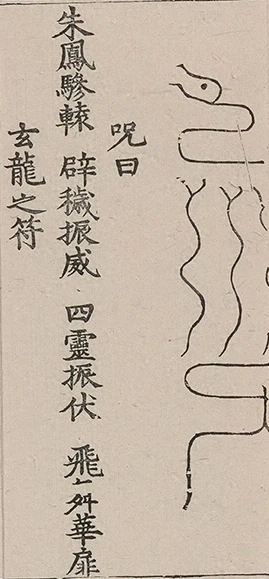 咒曰
朱鳳驂轅 辟穢振威 四靈振伏 飛舞華扉
玄龍之符